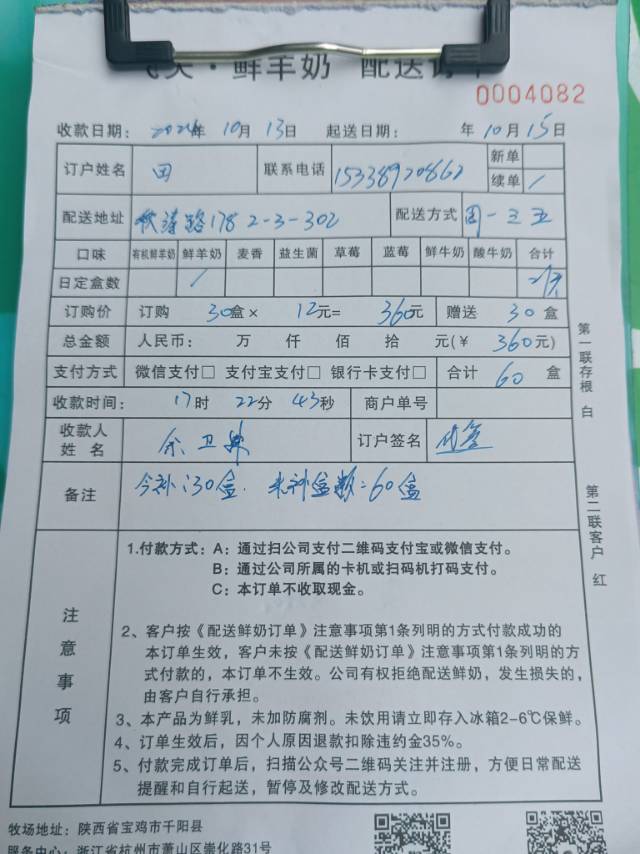 ·鲜羊奶 配送订单
0004082
收款日期: 2024年 10月 13日 起送日期: 年 10月 15日
订户姓名 田 联系电话 15338920862 新单
续单 /
配送地址 路178 2-3-302 配送方式 周一三五
口味 有机鲜羊奶 鲜羊奶 麦香 益生菌 草莓 蓝莓 鲜牛奶 酸牛奶 合计
日定盒数 /
订购价 订购 30盒× 12元= 360元 赠送 30盒
总金额 人民币: 万 仟 佰 拾 元(¥ 360元)
支付方式 微信支付□ 支付宝支付□ 银行卡支付□ 合计 60 盒
收款时间: 17时 22分 43秒 商户单号
收款人姓名 余卫 订户签名
备注 今补:30盒. 未补盒数:60盒
第一联存根 白
第二联客户 红
注意事项
1.付款方式: A: 通过扫公司支付二维码支付宝或微信支付。
B: 通过公司所属的卡机或扫码机打码支付。
C: 本订单不收取现金。
2、客户按《配送鲜奶订单》注意事项第1条列明的方式付款成功的
本订单生效，客户未按《配送鲜奶订单》注意事项第1条列明的方
式付款的，本订单不生效。公司有权拒绝配送鲜奶，发生损失的，
由客户自行承担。
3、本产品为鲜乳，未加防腐剂。未饮用请立即存入冰箱2-6℃保鲜。
4、订单生效后，因个人原因退款扣除违约金35%。
5、付款完成订单后，扫描公众号二维码关注并注册，方便日常配送
提醒和自行起送，暂停及修改配送方式。
牧场地址: 陕西省宝鸡市千阳县
服务中心: 浙江省杭州市萧山区崇化路31号